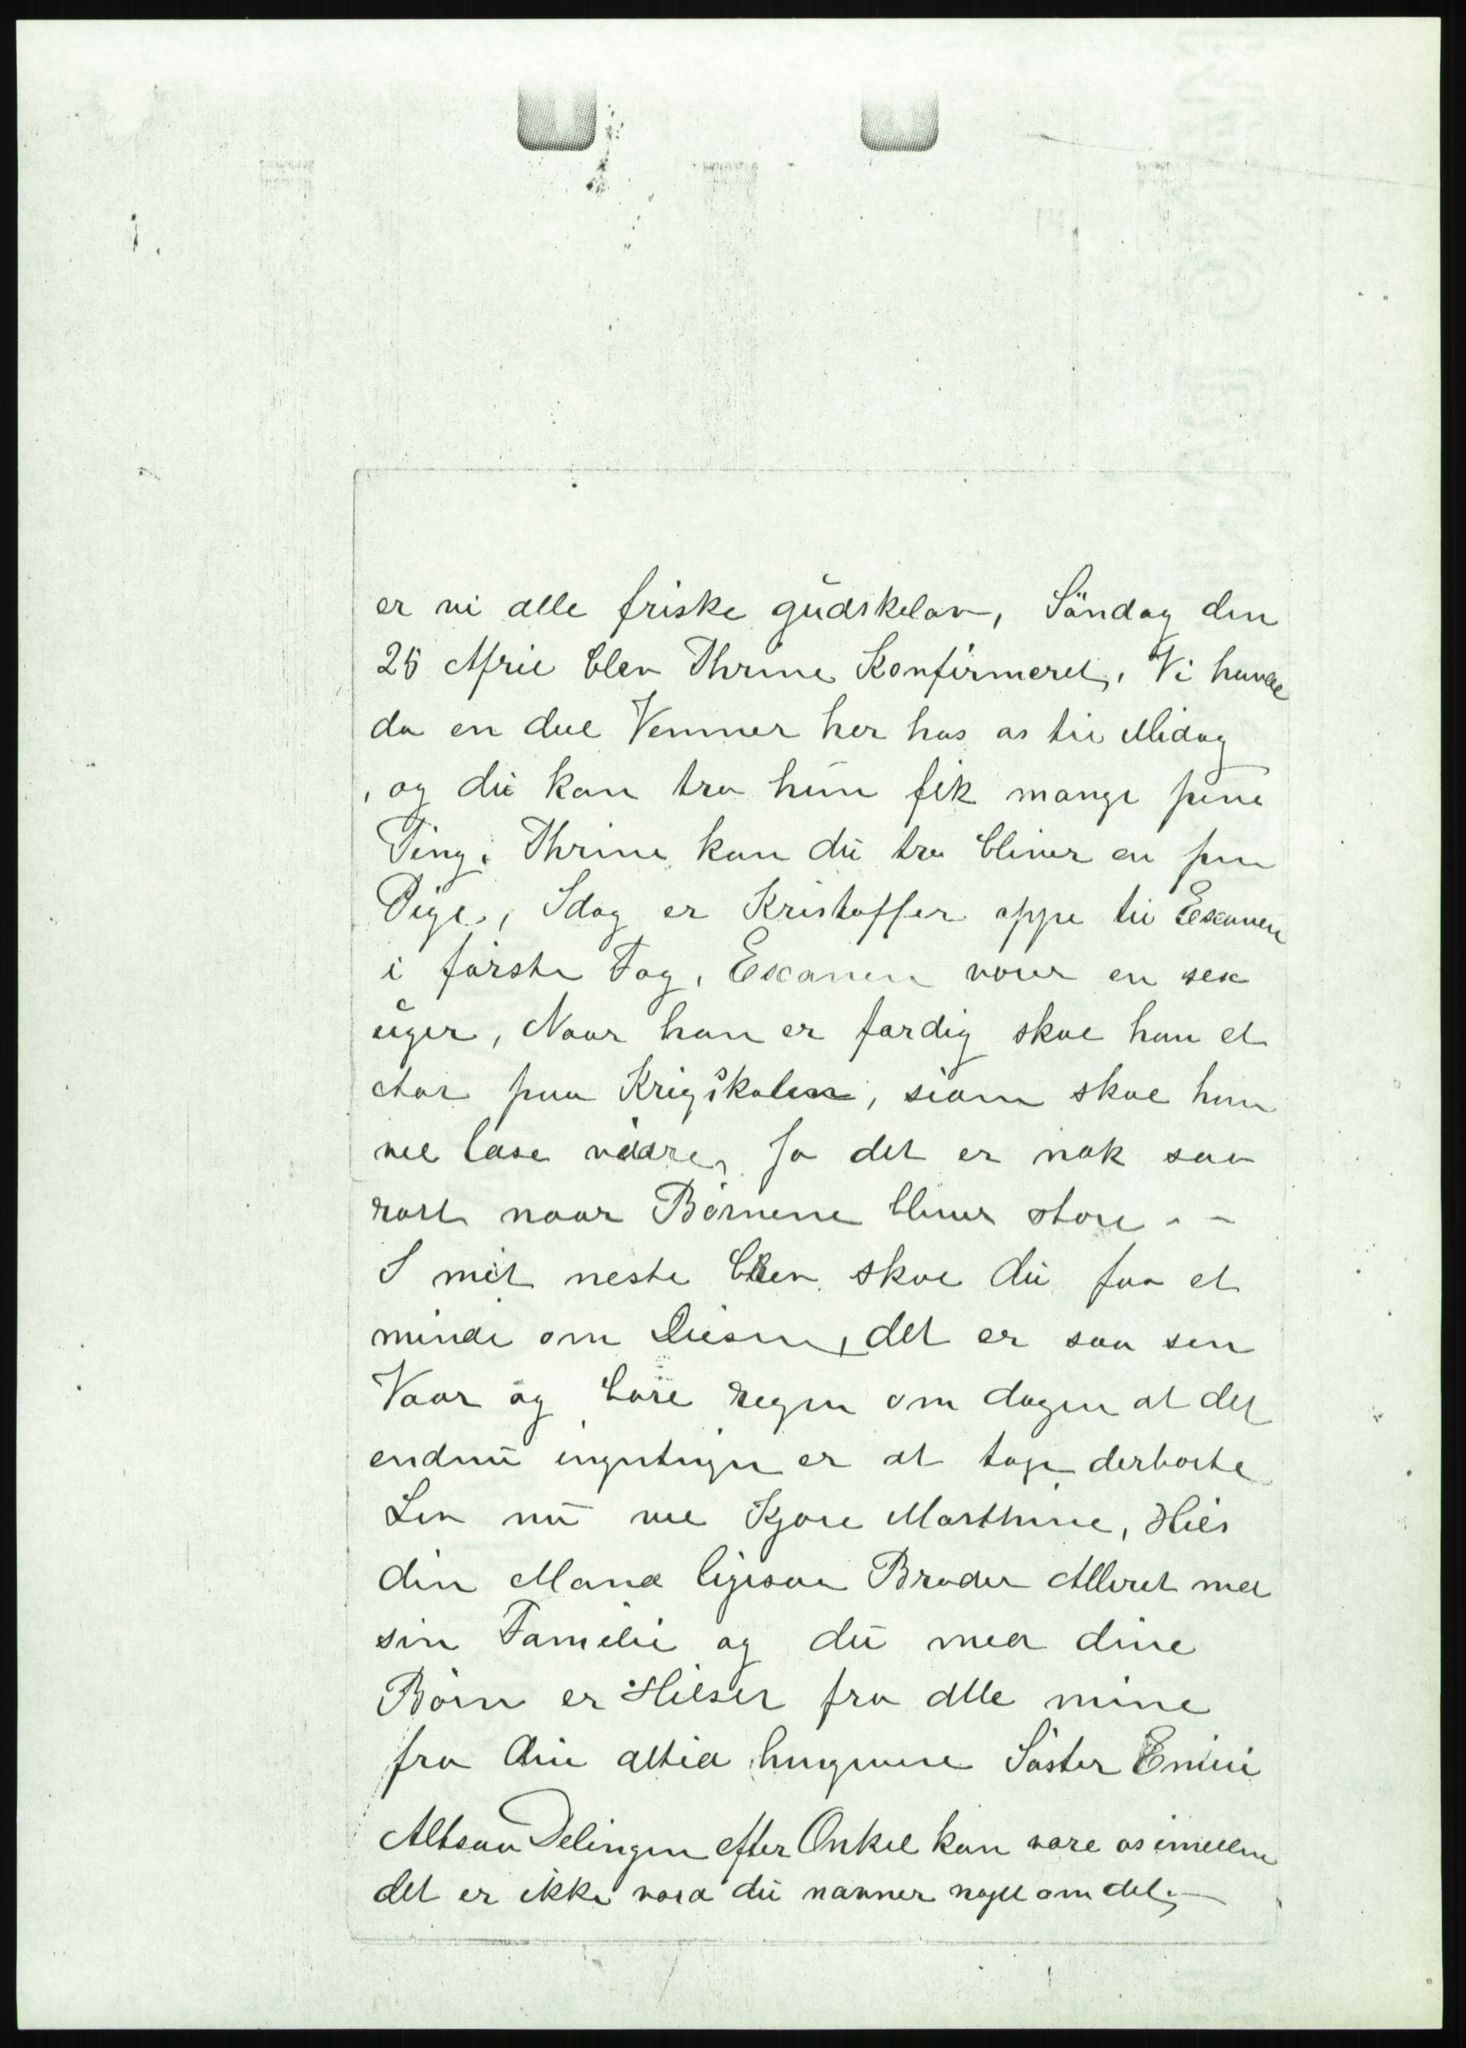 er vi alle friske gudskelov, Söndag den
25 April blev Thrine Konfirmeret, Vi havde
da en del Venner her hos os til Midag
, og du kan tro hun fik mange pene
Ting, Thrine kan du tro bliver en pen
Pige, Idag er Kristoffer oppe til Examen
i förste Fag, Examen varer en sex
uger, Naar han er færdig skal han et
Aar paa Krigsskolen, siam skal han
vel læse vidre, Ja det er nok saa
rart naar Börnene bliver store --
I mit neste brev skal du faa et
minde om det er saa sen
Vaar og bare regn om dagen at det
endnu ingenting er at tage derborte
Lev nu vel Kjære Marthine, Hils
din Mand ligesaa Broder Albret med
sin Familie og du med dine
Börn er Hilset fra alle mine
fra din altid hengivne Söster Emilie
Altsaa Delingen efter Onkel kan være os imellem
det er ikke værd du nævner noget om det, —